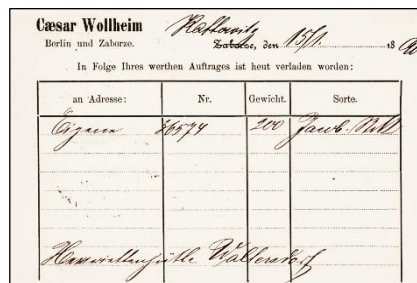 Cæsar Wollheim
Berlin und Zaborze.
Kattowitz
Zabrze, den 15/1. 18 90
In Folge Ihres werthen Auftrages ist heut verladen worden:
an Adresse: Nr. Gewicht. Sorte.
Eigene 26574 200 Jacob.
Henriettenhütte Waltersdorf